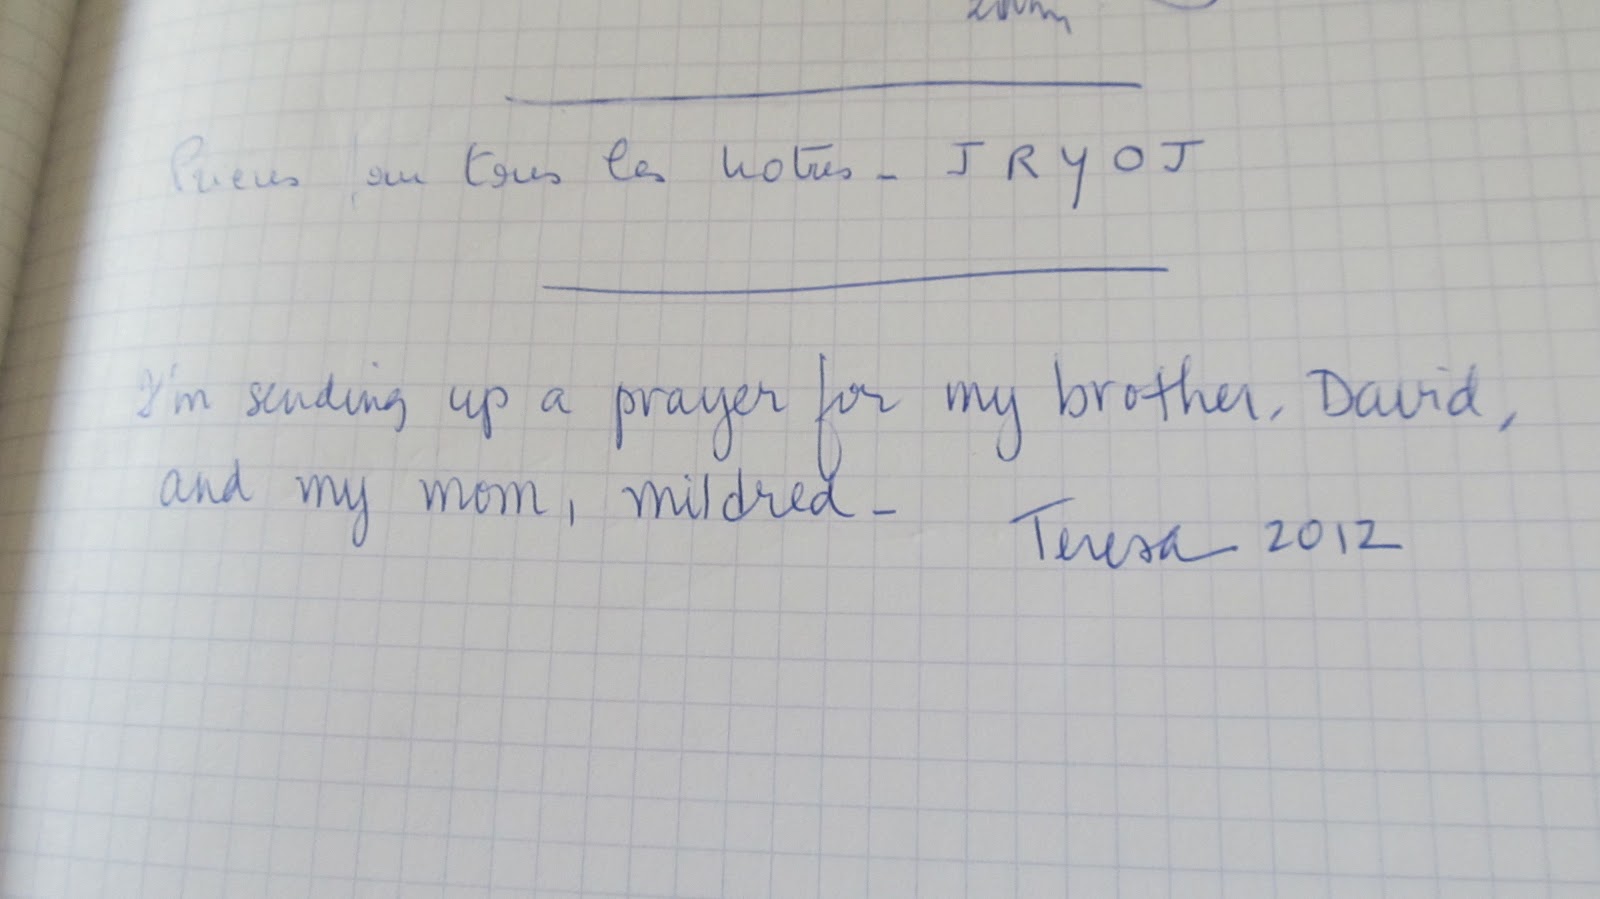 Prieres pour tous les notres - J R Y O J
I'm sending up a prayer for my brother, David,
and my mom, mildred -
Teresa 2012